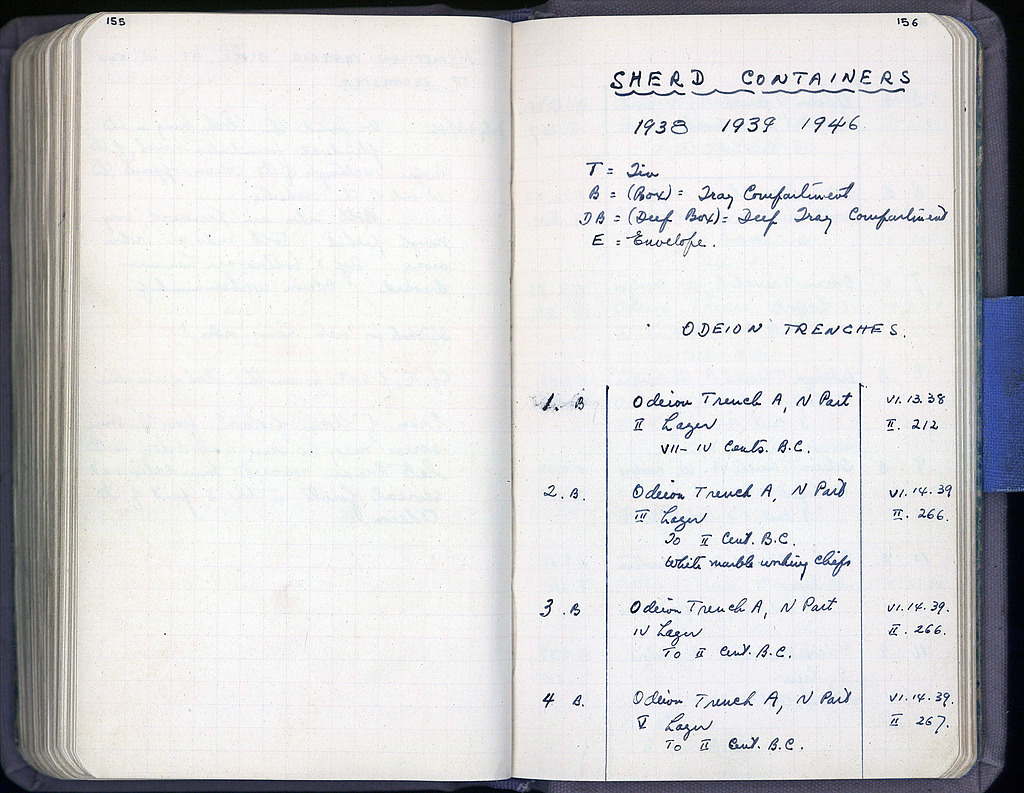 155
156
SHERD CONTAINERS
1938 1939 1946
T = Tin
B = (Box) = Tray Compartment
DB = (Deep Box) = Deep Tray Compartment
E = Envelope.
ODEION TRENCHES.
1. B Odeion Trench A, N Part VI.13.38
II Lager II. 212
VII-IV Cents. B.C.
2. B. Odeion Trench A, N Part VI.14.39
III Lager II. 266.
To II Cent. B.C.
White marble working chips
3. B Odeion Trench A, N Part VI.14.39.
IV Lager II. 266.
To II Cent. B.C.
4 B. Odeion Trench A, N Part VI.14.39.
V Lager II 267.
To II Cent. B.C.